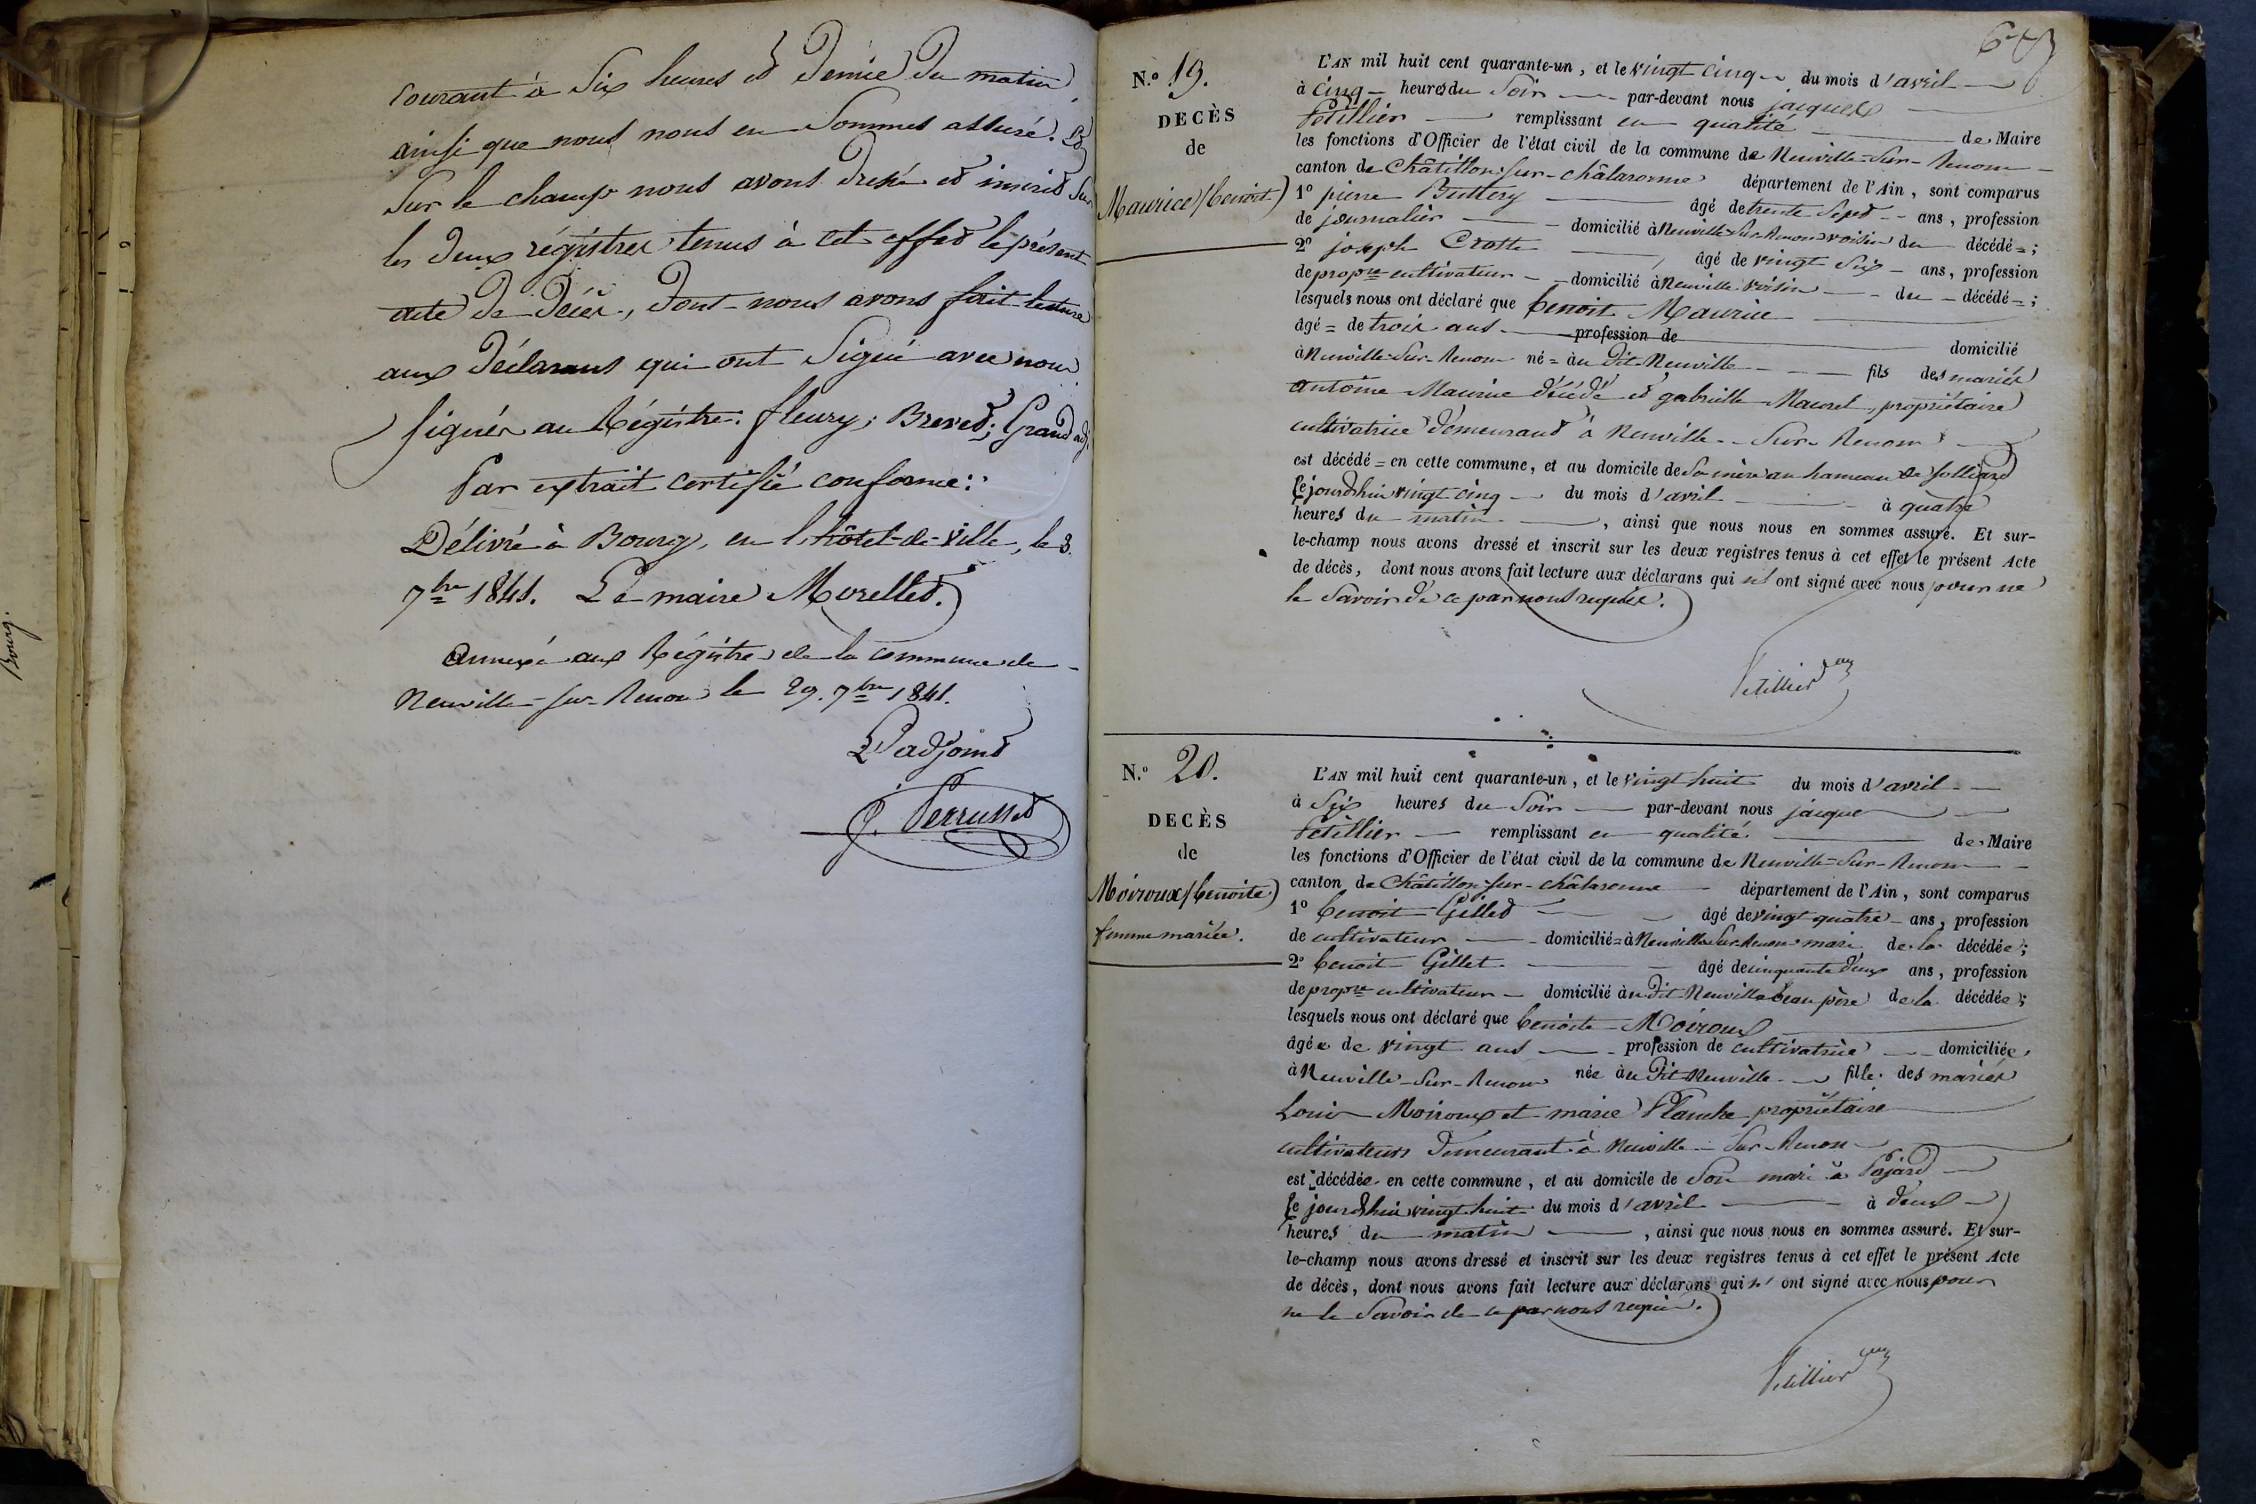 courant à Six heures et Demie du matin
ainsi que nous nous en Sommes assuré. Et
Sur le champ nous avons dressé et inscrit Sur
les deux régistres tenus à cet effet le présent
acte de décès, dont nous avons fait lecture
aux Déclarans qui ont Signé avec nous
Signés au Régistre: fleury; Brevet; Grand adj.
Par extrait certifié conforme:
Délivré à Bourg, en l'hôtel-de-ville, le 3.
7bre 1841. Le maire Morellet.
Annexé aux Régistres de la commune de
Neuville-sur-Renon le 29. 7bre 1841.
L'adjoint
J. Perrusset
Bourg.
N.º 19.
DECÈS
de
Maurice (benoit)
L'AN mil huit cent quarante-un, et le vingt cinq du mois d'avril
à cinq heures du Soir par-devant nous jacques
Petillier remplissant en qualité de Maire
les fonctions d'Officier de l'état civil de la commune de Neuville-Sur-Renom
canton de Châtillon-sur-châlaronne département de l'Ain, sont comparus
1º pierre Buttery âgé de trente Sept ans, profession
de journalier domicilié à Neuville-Sur-Renom voisin du décédé = ;
2º joseph Crotte âgé de vingt Six ans, profession
de propre cultivateur domicilié à Neuville voisin du décédé = ;
lesquels nous ont déclaré que benoit Maurice
âgé = de trois ans profession de domicilié
à Neuville-Sur-Renom né = au Dit Neuville fils des mariés
antoine Maurice décédé et gabrielle Maurel, propriétaire
cultivatrice demeurant à Neuville-Sur-Renom
est décédé = en cette commune, et au domicile de Sa mère au hameau de
Cejourdhui vingt cinq du mois d'avril à quatre
heures du matin, ainsi que nous nous en sommes assuré. Et sur-
le-champ nous avons dressé et inscrit sur les deux registres tenus à cet effet le présent Acte
de décès, dont nous avons fait lecture aux déclarans qui n' ont signé avec nous pour ne
le Savoir de ce par nous requis.
Petillier
N.º 20.
DECÈS
de
Moiroux (benoite)
femme mariée.
L'AN mil huit cent quarante-un, et le vingt huit du mois d'avril
à Six heures du Soir par-devant nous jacques
Petillier remplissant en qualité de Maire
les fonctions d'Officier de l'état civil de la commune de Neuville-Sur-Renom
canton de Châtillon-sur-châlaronne département de l'Ain, sont comparus
1º benoit Gillet âgé de vingt quatre ans, profession
de cultivateur domicilié = à Neuville Sur-Renom mari de la décédée;
2º benoit Gillet âgé de cinquante deux ans, profession
de propre cultivateur domicilié au dit Neuville beau père de la décédée;
lesquels nous ont déclaré que benoite Moiroux
âgée de vingt ans profession de cultivatrice domiciliée
à Neuville-Sur-Renom née au Dit Neuville fille des mariés
Louis Moiroux et marie Planche propriétaire
cultivateurs demeurant à Neuville-Sur-Renon
est décédée en cette commune, et au domicile de Son mari à Pajard
Ce jourdhui vingt huit du mois d'avril à deux
heures du matin, ainsi que nous nous en sommes assuré. Et sur-
le-champ nous avons dressé et inscrit sur les deux registres tenus à cet effet le présent Acte
de décès, dont nous avons fait lecture aux déclarans qui n' ont signé avec nous pour
ne le Savoir de ce par nous requis.
Petillier